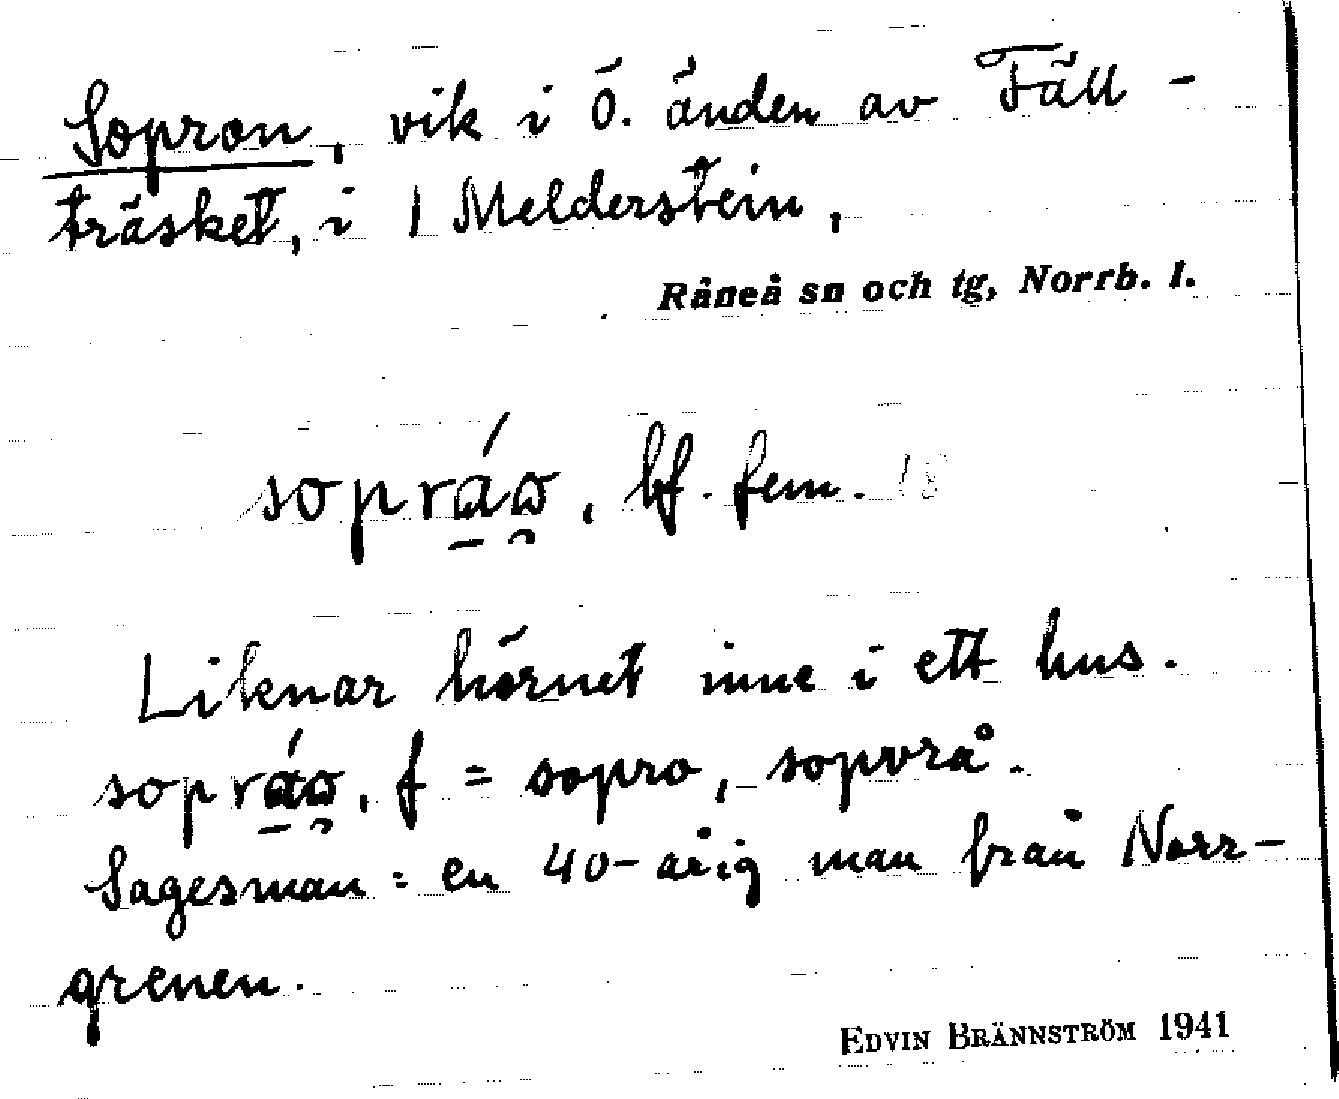 Sopron, vik i Ö. änden av Fäll-
träsket, i 1 Melderstein,
Råneå sn och tg, Norrb. l.
bf. fem.
Liknar hörnet inne i ett hus.
f = sopro, sopvrå.
Sagesman: en 40-årig man från Norr-
grenen.
EDVIN BRÄNNSTRÖM 1941